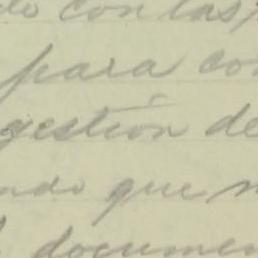 do con las
para co
gestión de
ndo que n
documen